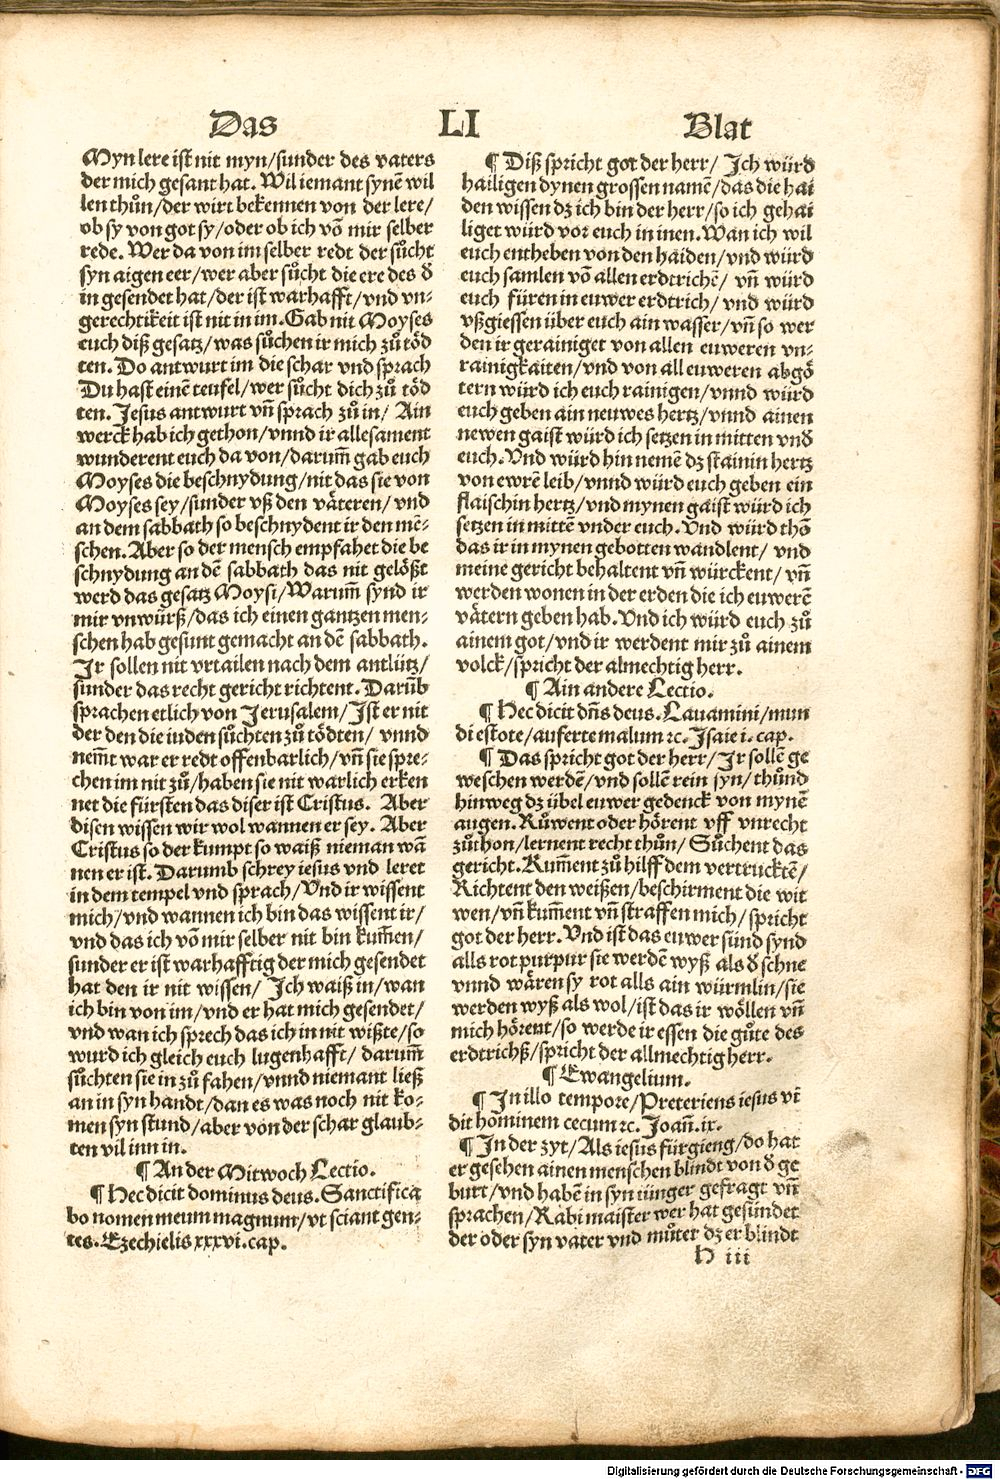 Das LI Blat
Myn lere ist nit myn/sunder des vaters
der mich gesant hat. Wil iemant synē wil
len thůn/der wirt bekennen von der lere/
ob sy von got sy/oder ob ich vō mir selber
rede. Wer da von im selber redt der sůcht
syn aigen eer/wer aber sůcht die ere des d̄
in gesendet hat/der ist warhafft/vnd vn-
gerechtikeit ist nit in im. Gab nit Moyses
euch diß gesatz/was sůchen ir mich zů töd
ten. Do antwurt im die schar vnd sprach
Du hast einē teufel/wer sůcht dich zů töd
ten. Jesus antwurt vn̄ sprach zů in/ Ain
werck hab ich gethon/vnnd ir allesament
wunderent euch da von/darum̄ gab euch
Moyses die beschnydung/nit das sie von
Moyses sey/sunder vß den väteren/vnd
an dem sabbath so beschnydent ir den mē-
schen. Aber so der mensch empfahet die be
schnydung an dē sabbath das nit gelößt
werd das gesatz Moysi/Warum̄ synd ir
mir vnwürß/das ich einen gantzen men-
schen hab gesunt gemacht an dē sabbath.
Ir sollen nit vrtailen nach dem antlütz/
sunder das recht gericht richtent. Darūb
sprachen etlich von Jerusalem/Ist er nit
der den die iuden sůchten zů tödten/ vnnd
nem̄t war er redt offenbarlich/vn̄ sie spre-
chen im nit zů/haben sie nit warlich erken
net die fürsten das diser ist Cristus. Aber
disen wissen wir wol wannen er sey. Aber
Cristus so der kumpt so waiß nieman wā
nen er ist. Darumb schrey iesus vnd leret
in dem tempel vnd sprach/Vnd ir wissent
mich/vnd wannen ich bin das wissent ir/
vnd das ich vō mir selber nit bin kum̄en/
sunder er ist warhafftig der mich gesendet
hat den ir nit wissen/ Ich waiß in/wan
ich bin von im/vnd er hat mich gesendet/
vnd wan ich sprech das ich in nit wißte/so
wurd ich gleich euch lugenhafft/ darum̄
sůchten sie in zů fahen/vnnd niemant ließ
an in syn handt/dan es was noch nit ko-
men syn stund/aber von der schar glaub-
ten vil inn in.
¶ An der Mitwoch Lectio.
¶ Hec dicit dominus deus. Sanctifica
bo nomen meum magnum/vt sciant gen-
tes. Ezechielis xxxvi. cap.
¶ Diß spricht got der herr/ Ich würd
hailigen dynen grossen namē/das die hai
den wissen dz ich bin der herr/so ich gehai
liget würd vor euch in inen. Wan ich wil
euch entheben von den haiden/vnd würd
euch samlen vō allen erdtrichē/ vn̄ würd
euch füren in euwer erdtrich/ vnd würd
vßgiessen über euch ain wasser/vn̄ so wer
den ir gerainiget von allen euweren vn-
rainigkaiten/vnd von all euweren abgö
tern würd ich euch rainigen/vnnd würd
euch geben ain neuwes hertz/vnnd ainen
newen gaist würd ich setzen in mitten vnd̄
euch. Vnd würd hin nemē dz stainin hertz
von ewrē leib/vnnd würd euch geben ein
flaischin hertz/vnd mynen gaist würd ich
setzen in mittē vnder euch. Vnd würd thō
das ir in mynen gebotten wandlent/ vnd
meine gericht behaltent vn̄ würckent/ vn̄
werden wonen in der erden die ich euwerē
vätern geben hab. Vnd ich würd euch zů
ainem got/vnd ir werdent mir zů ainem
volck/spricht der almechtig herr.
¶ Ain andere Lectio.
¶ Hec dicit dn̄s deus. Lauamini/mun
di estote/auferte malum ꝛc. Isaie i. cap.
¶ Das spricht got der herr/Ir sollē ge
weschen werdē/vnd sollē rein syn/thůnd
hinweg dz übel euwer gedenck von mynē
augen. Růwent oder hörent vff vnrecht
zůthon/lernent recht thůn/ Sůchent das
gericht. Kum̄ent zů hilff dem vertrucktē/
Richtent den weißen/beschirment die wit
wen/vn̄ kum̄ent vn̄ straffen mich/spricht
got der herr. Vnd ist das euwer sünd synd
alls rot purpur sie werdē wyß als d̄ schne
vnnd wären sy rot alls ain würmlin/sie
werden wyß als wol/ist das ir wöllen vn̄
mich hörent/so werde ir essen die gůte des
erdtrichß/spricht der allmechtig herr.
¶ Ewangelium.
¶ In illo tempore/Preteriens iesus vi
dit hominem cecum ꝛc. Joan̄. ix.
¶ In der zyt/Als iesus fürgieng/do hat
er gesehen ainen menschen blindt von d̄ ge
burt/vnd habē in syn iünger gefragt vn̄
sprachen/Rabi maister wer hat gesündet
der oder syn vater vnd můter dz er blindt
H iii
Digitalisierung gefördert durch die Deutsche Forschungsgemeinschaft - DFG